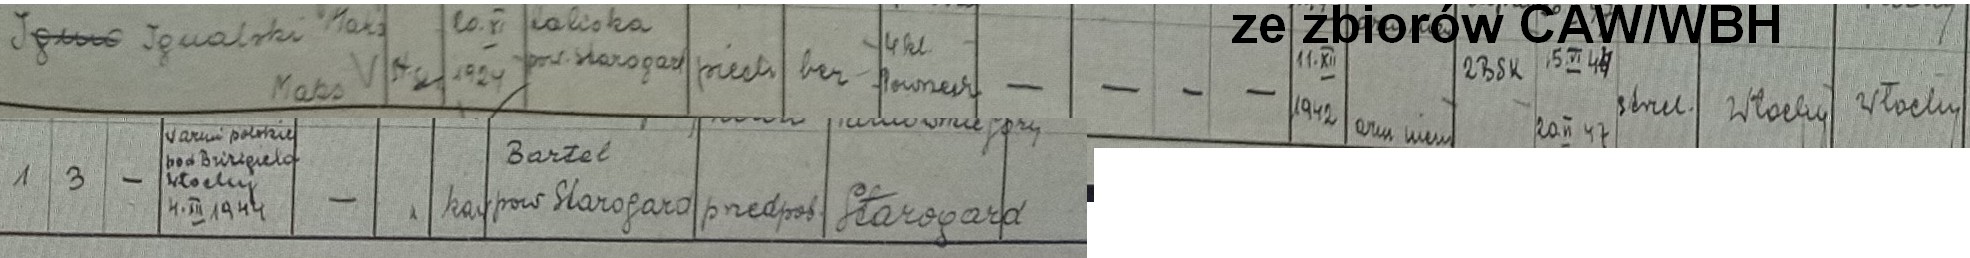 ze zbiorów CAW/WBH
Igualski
Maks
20.XI
1924
Kaliska
pow. Starogard
piech
bez
4 kl.
Powszech
— — — —
11.XII
1942
arm niem
2BSK
15.VI 44
20.II 47
strzel.
Włochy
Włochy
1 3 —
W armii polskiej
pod
Włochy
4.XII 1944
—
kaw
Bartel
pow Starogard
przedpob.
Starogard